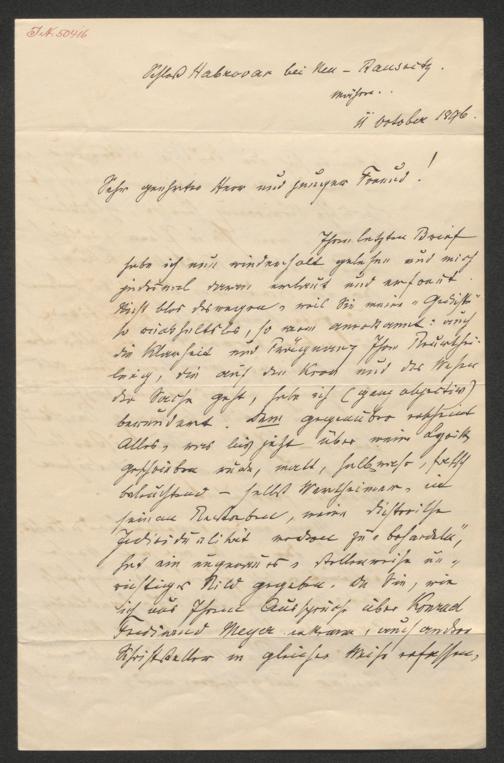 J.N. 50416
Schloß Habrovan bei Neu-Rausnitz.
Mähren.
11 October 1896.
Sehr geehrter Herr und junger Freund!
Ihren letzten Brief
habe ich nun wiederholt gelesen und mich
jedesmal daran erbaut und erfreut.
Nicht blos deswegen, weil Sie meine "Gedichte"
so rückhaltslos, so warm anerkannt: auch
die Klarheit und Prägnanz Ihrer Beurthei-
lung, die auf den Kern und das Wesen
der Sache geht, habe ich (ganz objectiv)
bewundert. Dem gegenüber erscheint
Alles, was bis jetzt über meine Lyrik
geschrieben wurde, matt, halbwahr, falsch
beleuchtend – selbst Wertheimer, in
seinem Bestreben, meine dichterische
Individualität
hat ein ungenaues, stellenweise un-
richtiges Bild gegeben. Da Sie, wie
ich aus Ihrem Ausspruch über Konrad
Ferdinand Meyer erkenne, auch andere
Schriftsteller in gleicher Weise erfassen,